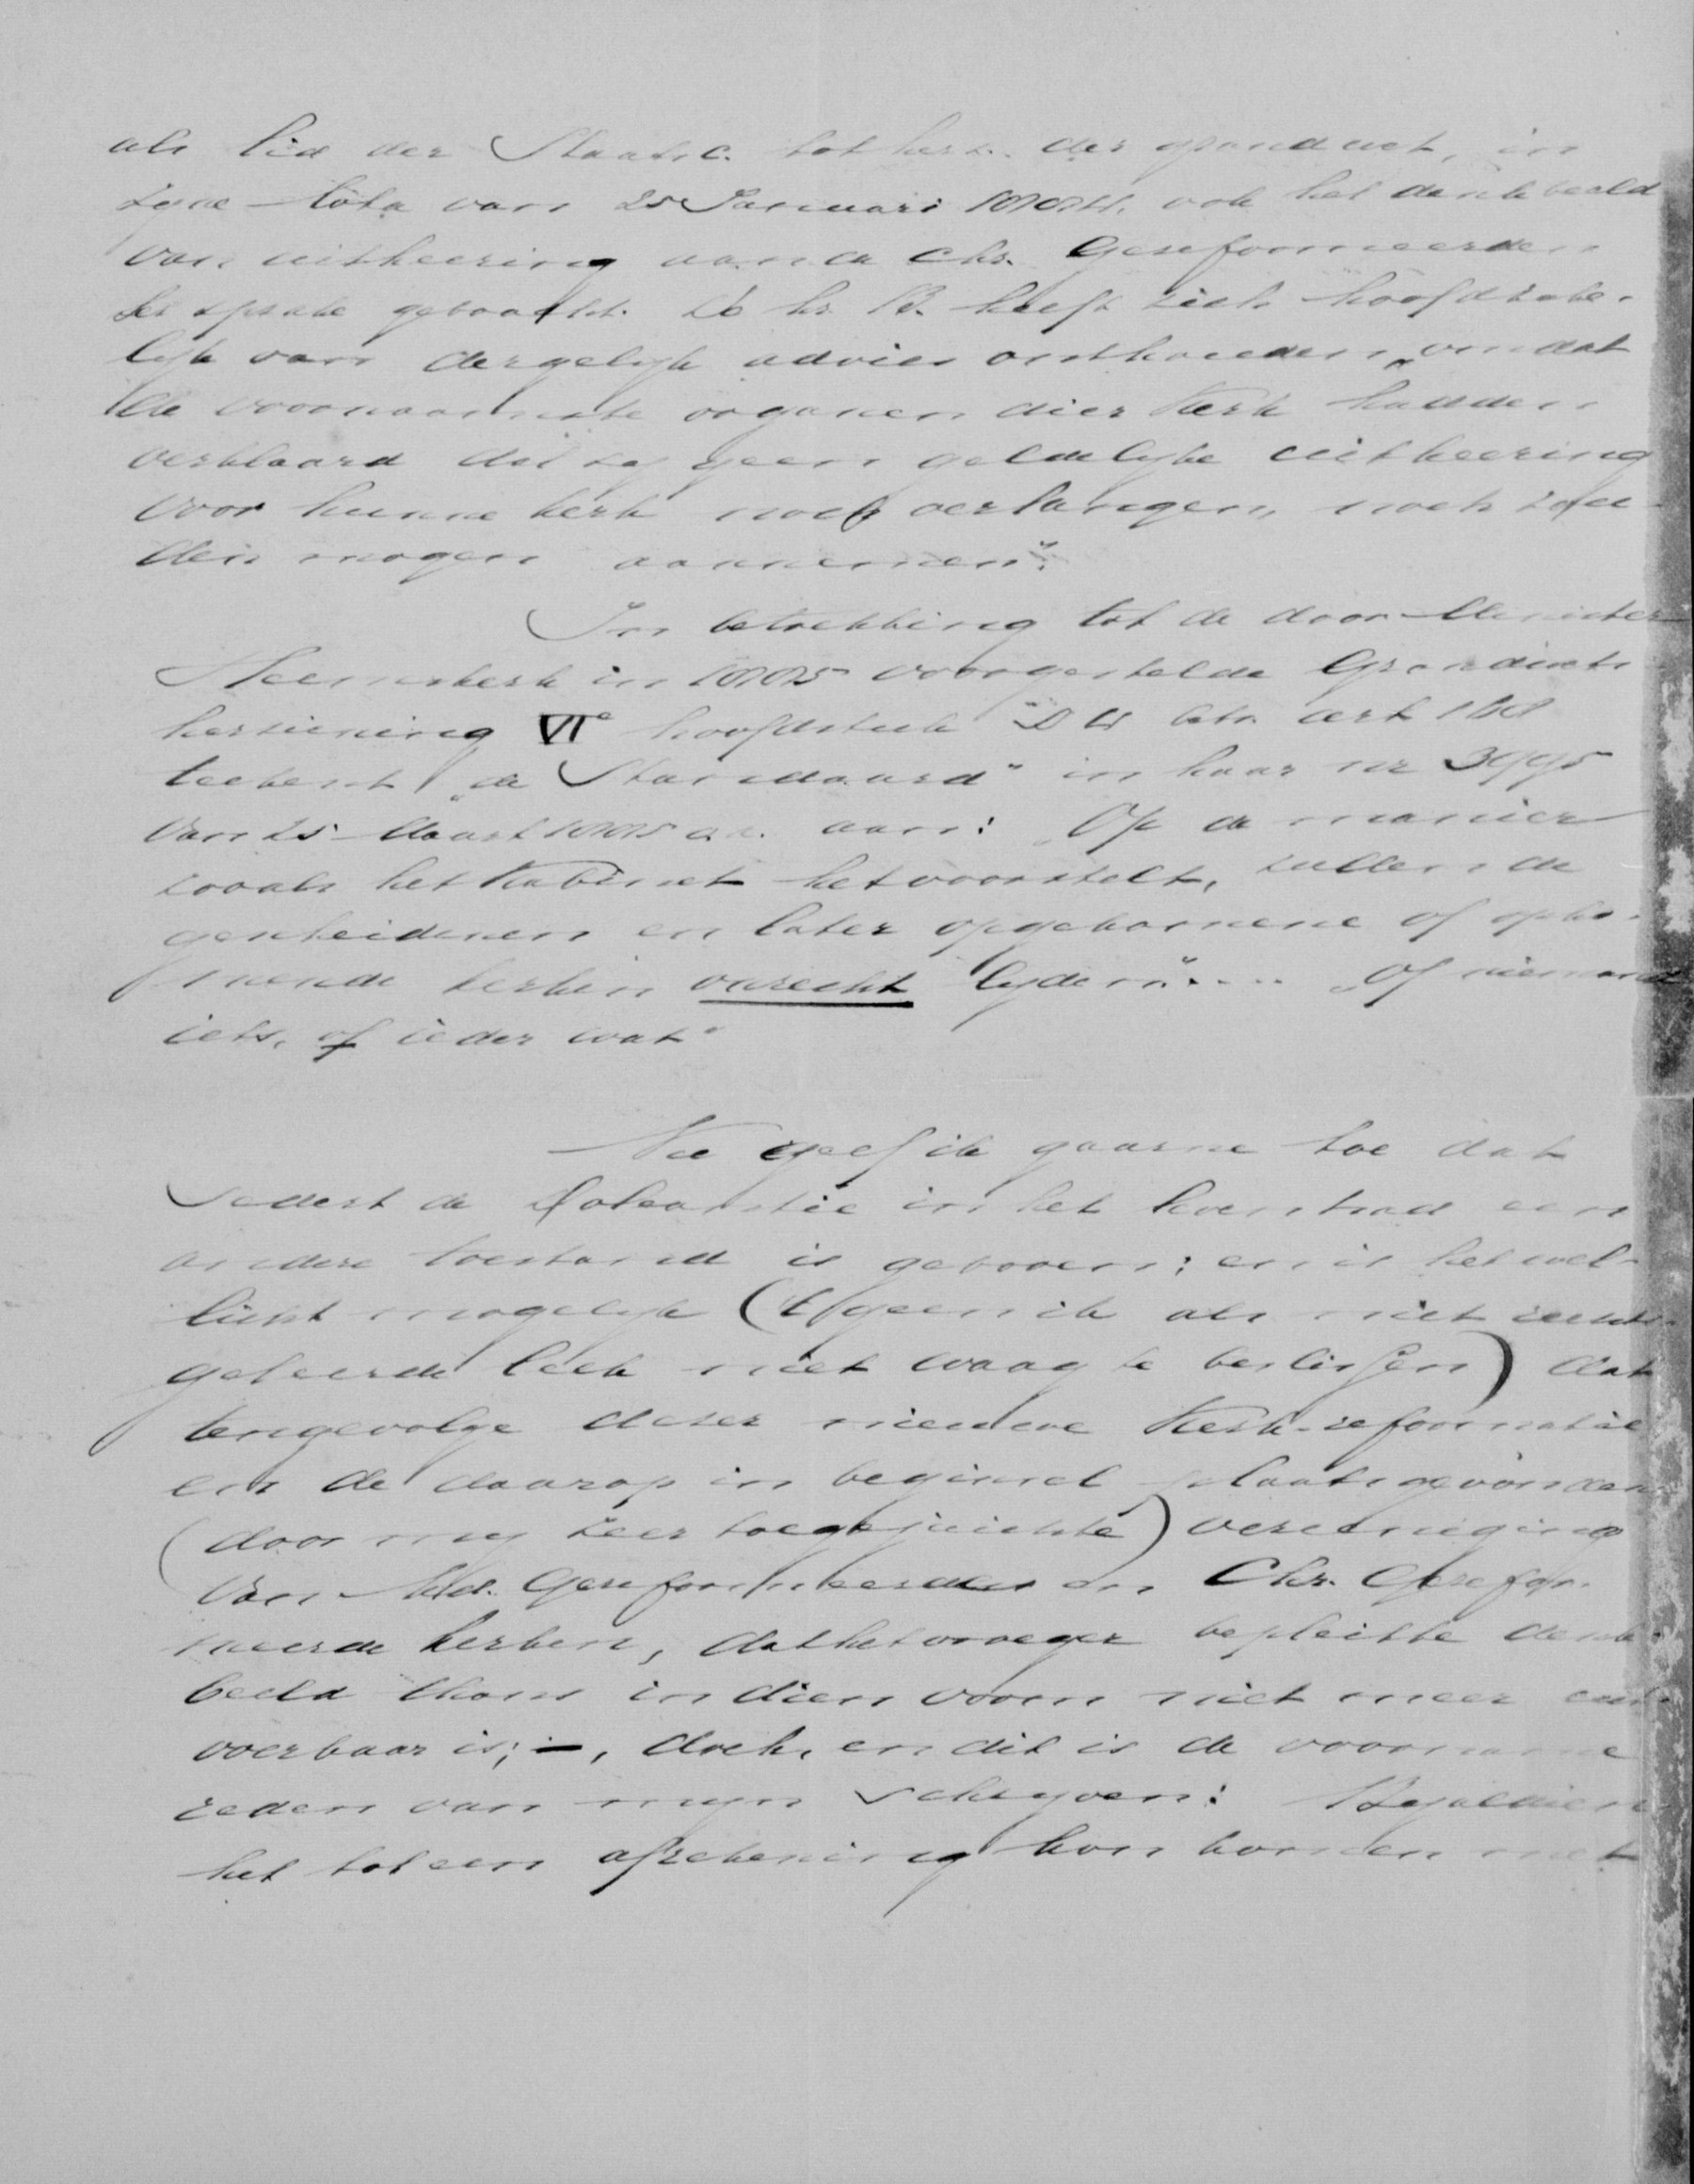 als lid der Staatsc. tot herz. der grondwet, in
zyne Nota van 25 Januari 1884, ook het denkbeeld
van uitkeering aan de Chr. Gereformeerden
ter sprake gebracht. De hr. B. heeft zich hoofdzake-
lyk van dergelyk advies onthouden, „omdat
de voornaamste organen dier Kerk hadden
verklaard dat zy geen geldelyke uitkeering
voor hunne kerk noch verlangen, noch zou-
den mogen aannemen".
In betrekking tot de door Minister
Heemskerk in 1885 voorgestelde Grondwets
herziening VIe hoofdstuk betr. art 168
teekent „de Standaard" in haar nr 3995
van 25 Maart 1885 o.a. aan: „Op de manier
zooals het Kabinet het voorstelt, zullen de
gescheidenen en later opgekomene of opko-
mende kerken onrecht lyden".... „Of niemand
iets, of ieder wat"
Nu geef ik gaarne toe dat
sedert de Doleantie in het leven trad een
andere toestand is geboren; en is het wel-
licht mogelyk (t'geen ik als niet recht-
geleerde leek niet waag te beslissen) dat
tengevolge dezer nieuwe Kerk-reformatie
en de daarop in beginsel plaatsgevonden
(door my zeer toegejuichte) vereeniging
van Ned. Gereformeerde en Chr. Gerefor-
meerde kerken, dat het vroeger bepleitte denk-
beeld thans in dien vorm niet meer uit-
voerbaar is; –, doch, en dit is de voorname
reden van myn schryven: Byaldien
het tot een afrekening kon komen met